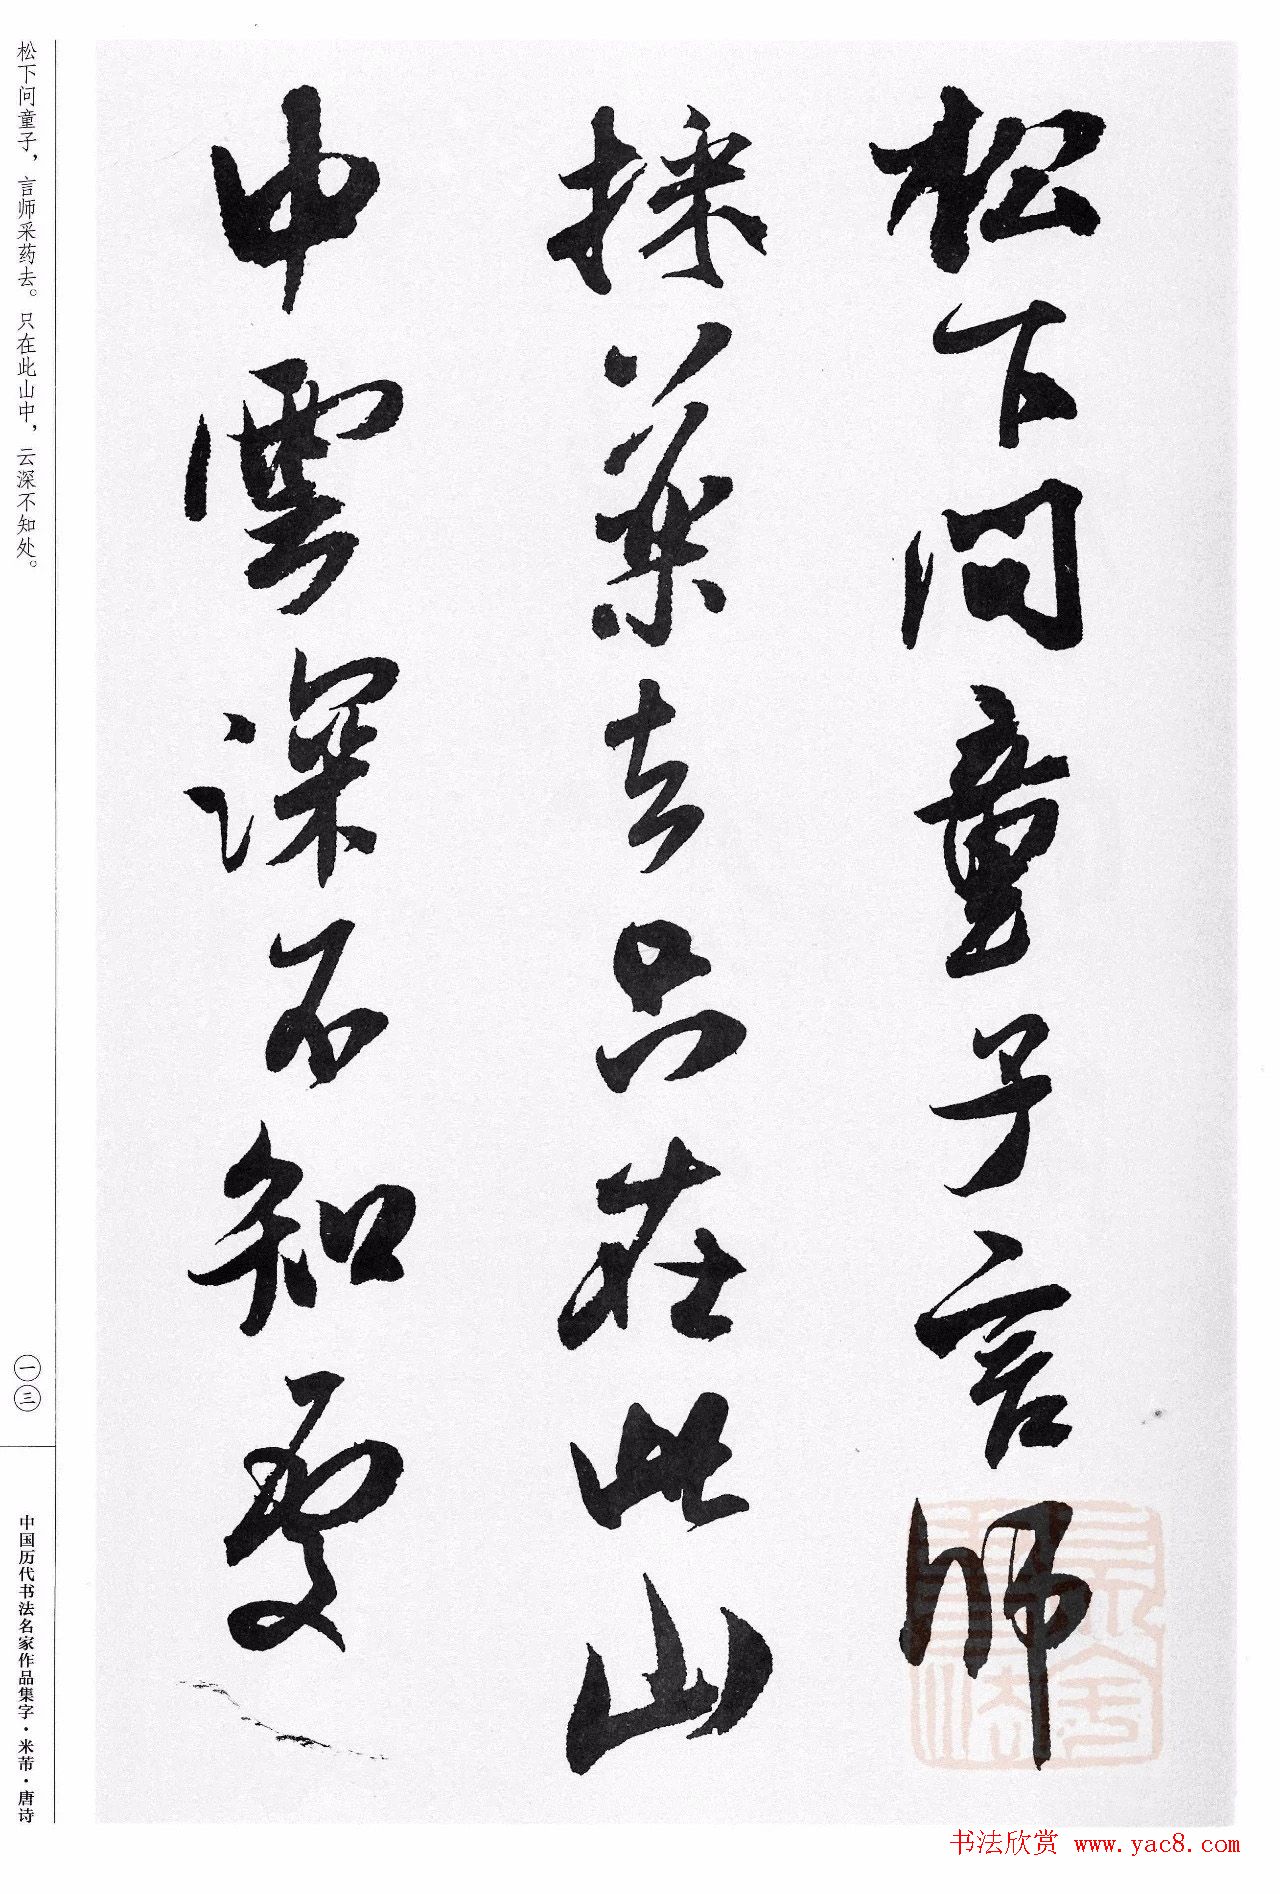 松下问童子言師
採藥去只在此山
中雲深不知處
松下问童子，言师采药去。只在此山中，云深不知处。
一三
中国历代书法名家作品集字·米芾·唐诗
书法欣赏 www.yac8.com